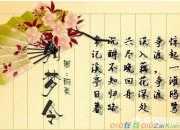 如梦令
常记溪亭日暮
沉醉不知归路
兴尽晚回舟
误入藕花深处
争渡，争渡，
惊起一滩鸥鹭